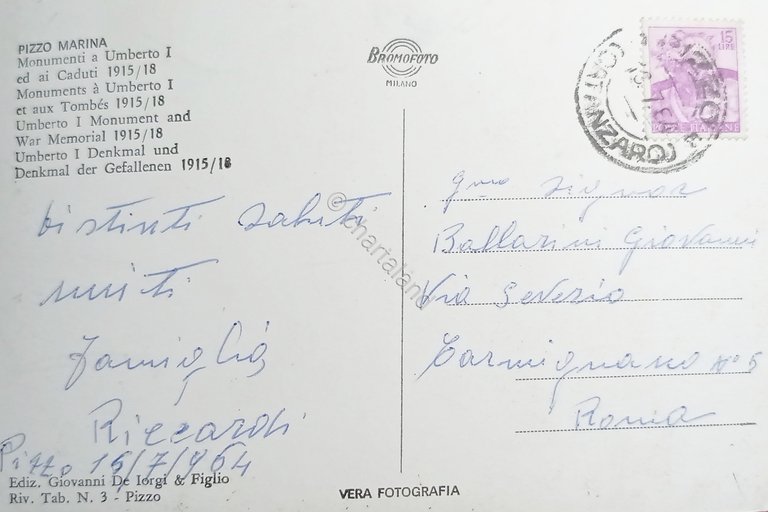 PIZZO MARINA
Monumenti a Umberto I
ed ai Caduti 1915/18
Monuments à Umberto I
et aux Tombés 1915/18
Umberto I Monument and
War Memorial 1915/18
Umberto I Denkmal und
Denkmal der Gefallenen 1915/18
BROMOFOTO
MILANO
15
LIRE
(CATANZARO)
© chartaland
Distinti saluti
uniti
Famiglia
Riccardi
Pizzo 15/7/964
Gmo Signor
Ballarini Giovanni
Via Severio
Carmignano N° 5
Roma
Ediz. Giovanni De Iorgi & Figlio
Riv. Tab. N. 3 - Pizzo
VERA FOTOGRAFIA